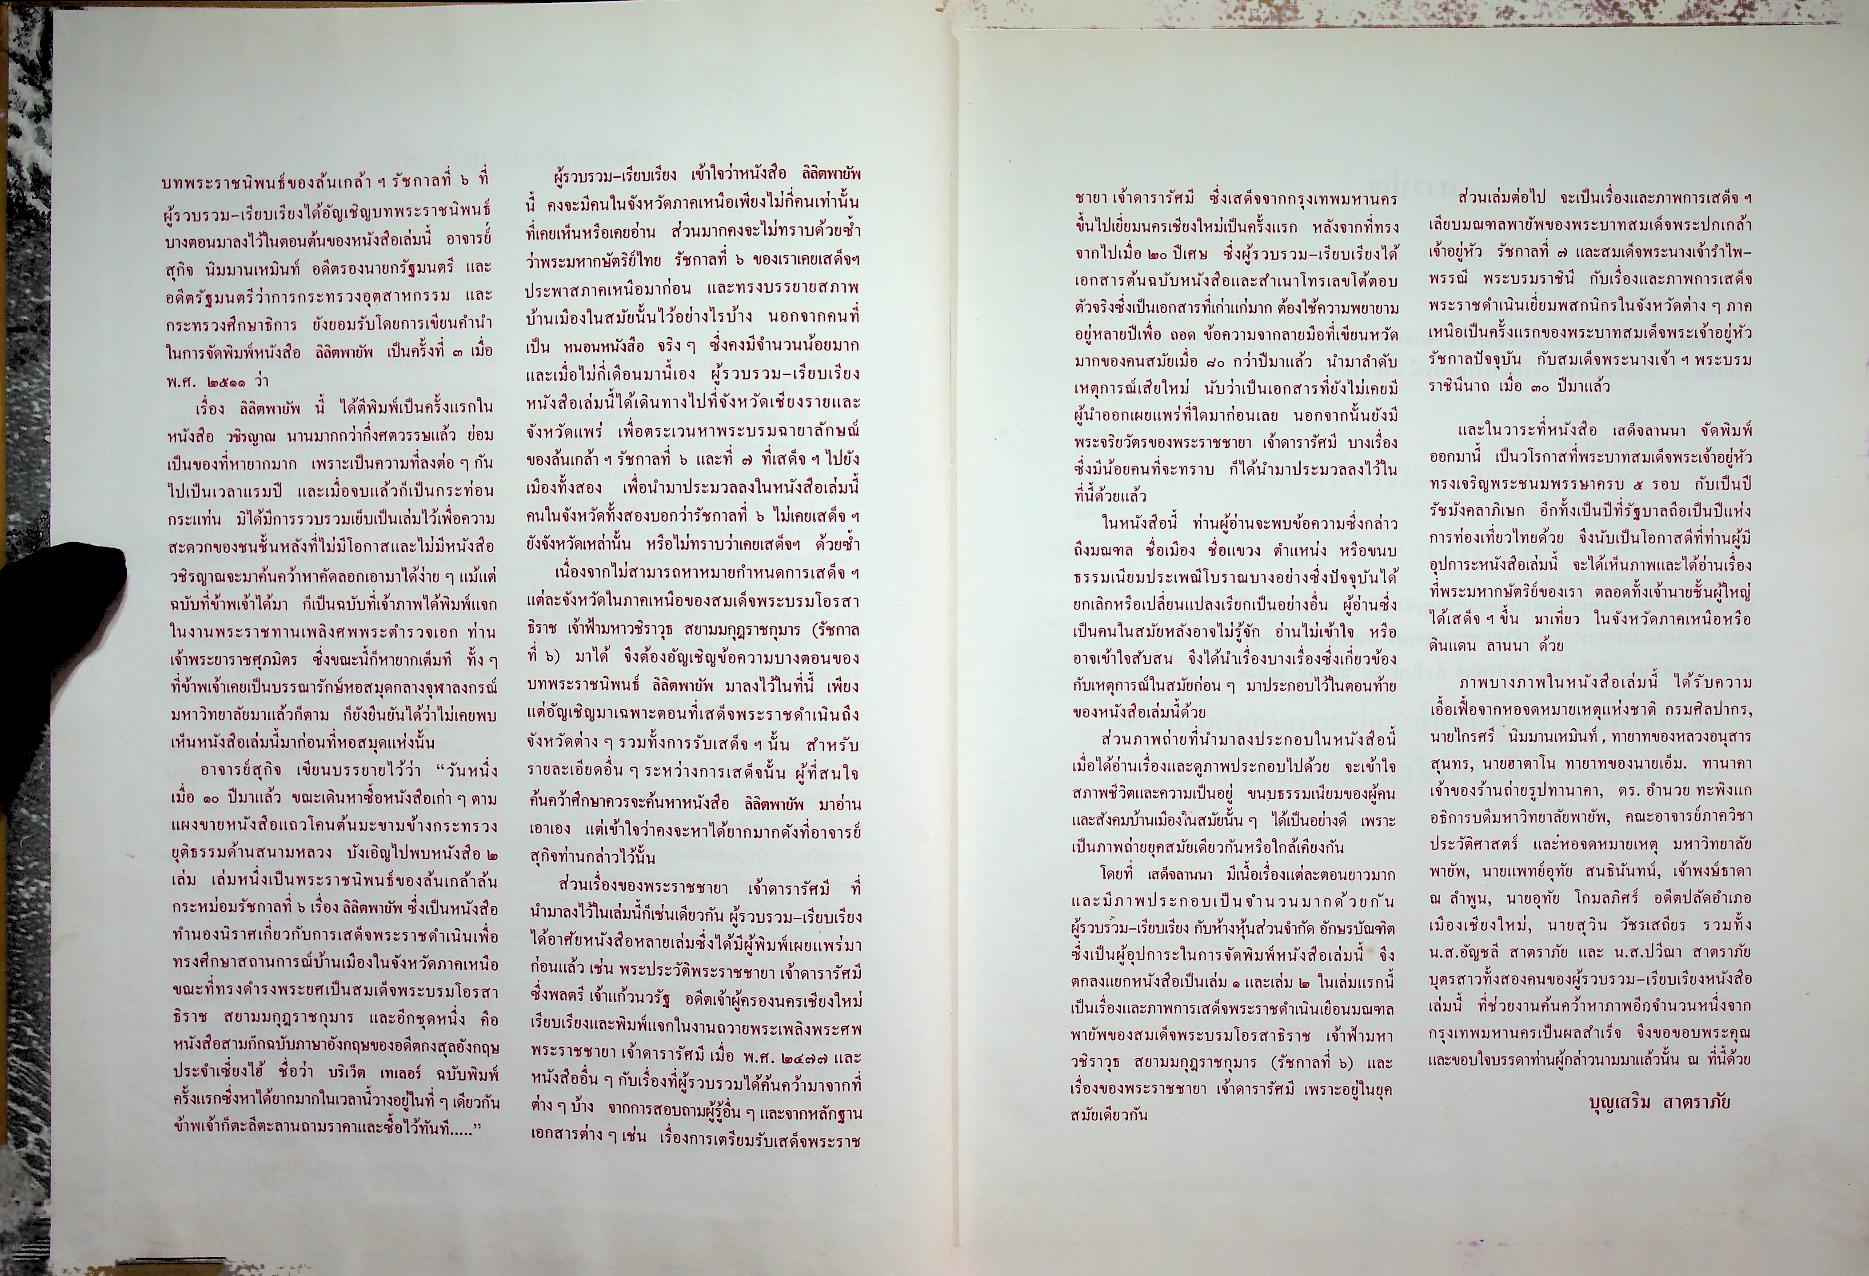 บทพระราชนิพนธ์ของล้นเกล้า ฯ รัชกาลที่ ๖ ที่
ผู้รวบรวม–เรียบเรียงได้อัญเชิญบทพระราชนิพนธ์
บางตอนมาลงไว้ในตอนต้นของหนังสือเล่มนี้ อาจารย์
สุกิจ นิมมานเหมินท์ อดีตรองนายกรัฐมนตรี และ
อดีตรัฐมนตรีว่าการกระทรวงอุตสาหกรรม และ
กระทรวงศึกษาธิการ ยังยอมรับโดยการเขียนคำนำ
ในการจัดพิมพ์หนังสือ ลิลิตพายัพ เป็นครั้งที่ ๓ เมื่อ
พ.ศ. ๒๕๑๑ ว่า
เรื่อง ลิลิตพายัพ นี้ ได้ตีพิมพ์เป็นครั้งแรกใน
หนังสือ วชิรญาณ นานมากกว่ากึ่งศตวรรษแล้ว ย่อม
เป็นของที่หายากมาก เพราะเป็นความที่ลงต่อ ๆ กัน
ไปเป็นเวลาแรมปี และเมื่อจบแล้วก็เป็นกระท่อน
กระแท่น มิได้มีการรวบรวมเย็บเป็นเล่มไว้เพื่อความ
สะดวกของชนชั้นหลังที่ไม่มีโอกาสและไม่มีหนังสือ
วชิรญาณจะมาค้นคว้าหาคัดลอกเอามาได้ง่าย ๆ แม้แต่
ฉบับที่ข้าพเจ้าได้มา ก็เป็นฉบับที่เจ้าภาพได้พิมพ์แจก
ในงานพระราชทานเพลิงศพพระตำรวจเอก ท่าน
เจ้าพระยาราชศุภมิตร ซึ่งขณะนี้ก็หายากเต็มที ทั้ง ๆ
ที่ข้าพเจ้าเคยเป็นบรรณารักษ์หอสมุดกลางจุฬาลงกรณ์
มหาวิทยาลัยมาแล้วก็ตาม ก็ยังยืนยันได้ว่าไม่เคยพบ
เห็นหนังสือเล่มนี้มาก่อนที่หอสมุดแห่งนั้น
อาจารย์สุกิจ เขียนบรรยายไว้ว่า “วันหนึ่ง
เมื่อ ๑๐ ปีมาแล้ว ขณะเดินหาซื้อหนังสือเก่า ๆ ตาม
แผงขายหนังสือแถวโคนต้นมะขามข้างกระทรวง
ยุติธรรมด้านสนามหลวง บังเอิญไปพบหนังสือ ๒
เล่ม เล่มหนึ่งเป็นพระราชนิพนธ์ของล้นเกล้าล้น
กระหม่อมรัชกาลที่ ๖ เรื่อง ลิลิตพายัพ ซึ่งเป็นหนังสือ
ทำนองนิราศเกี่ยวกับการเสด็จพระราชดำเนินเพื่อ
ทรงศึกษาสถานการณ์บ้านเมืองในจังหวัดภาคเหนือ
ขณะที่ทรงดำรงพระยศเป็นสมเด็จพระบรมโอรสา
ธิราช สยามมกุฎราชกุมาร และอีกชุดหนึ่ง คือ
หนังสือสามก๊กฉบับภาษาอังกฤษของอดีตกงสุลอังกฤษ
ประจำเซี่ยงไฮ้ ชื่อว่า บริเว็ต เทเลอร์ ฉบับพิมพ์
ครั้งแรกซึ่งหาได้ยากมากในเวลานี้วางอยู่ในที่ ๆ เดียวกัน
ข้าพเจ้าก็ตะลีตะลานถามราคาและซื้อไว้ทันที.....”
ผู้รวบรวม–เรียบเรียง เข้าใจว่าหนังสือ ลิลิตพายัพ
นี้ คงจะมีคนในจังหวัดภาคเหนือเพียงไม่กี่คนเท่านั้น
ที่เคยเห็นหรือเคยอ่าน ส่วนมากคงจะไม่ทราบด้วยซ้ำ
ว่าพระมหากษัตริย์ไทย รัชกาลที่ ๖ ของเราเคยเสด็จฯ
ประพาสภาคเหนือมาก่อน และทรงบรรยายสภาพ
บ้านเมืองในสมัยนั้นไว้อย่างไรบ้าง นอกจากคนที่
เป็น หนอนหนังสือ จริง ๆ ซึ่งคงมีจำนวนน้อยมาก
และเมื่อไม่กี่เดือนมานี้เอง ผู้รวบรวม–เรียบเรียง
หนังสือเล่มนี้ได้เดินทางไปที่จังหวัดเชียงรายและ
จังหวัดแพร่ เพื่อตระเวนหาพระบรมฉายาลักษณ์
ของล้นเกล้า ฯ รัชกาลที่ ๖ และที่ ๗ ที่เสด็จ ฯ ไปยัง
เมืองทั้งสอง เพื่อนำมาประมวลลงในหนังสือเล่มนี้
คนในจังหวัดทั้งสองบอกว่ารัชกาลที่ ๖ ไม่เคยเสด็จ ฯ
ยังจังหวัดเหล่านั้น หรือไม่ทราบว่าเคยเสด็จฯ ด้วยซ้ำ
เนื่องจากไม่สามารถหาหมายกำหนดการเสด็จ ฯ
แต่ละจังหวัดในภาคเหนือของสมเด็จพระบรมโอรสา
ธิราช เจ้าฟ้ามหาวชิราวุธ สยามมกุฎราชกุมาร (รัชกาล
ที่ ๖) มาได้ จึงต้องอัญเชิญข้อความบางตอนของ
บทพระราชนิพนธ์ ลิลิตพายัพ มาลงไว้ในที่นี้ เพียง
แต่อัญเชิญมาเฉพาะตอนที่เสด็จพระราชดำเนินถึง
จังหวัดต่าง ๆ รวมทั้งการรับเสด็จ ฯ นั้น สำหรับ
รายละเอียดอื่น ๆ ระหว่างการเสด็จนั้น ผู้ที่สนใจ
ค้นคว้าศึกษาควรจะค้นหาหนังสือ ลิลิตพายัพ มาอ่าน
เอาเอง แต่เข้าใจว่าคงจะหาได้ยากมากดังที่อาจารย์
สุกิจท่านกล่าวไว้นั้น
ส่วนเรื่องของพระราชชายา เจ้าดารารัศมี ที่
นำมาลงไว้ในเล่มนี้ก็เช่นเดียวกัน ผู้รวบรวม–เรียบเรียง
ได้อาศัยหนังสือหลายเล่มซึ่งได้มีผู้พิมพ์เผยแพร่มา
ก่อนแล้ว เช่น พระประวัติพระราชชายา เจ้าดารารัศมี
ซึ่งพลตรี เจ้าแก้วนวรัฐ อดีตเจ้าผู้ครองนครเชียงใหม่
เรียบเรียงและพิมพ์แจกในงานถวายพระเพลิงพระศพ
พระราชชายา เจ้าดารารัศมี เมื่อ พ.ศ. ๒๔๗๗ และ
หนังสืออื่น ๆ กับเรื่องที่ผู้รวบรวมได้ค้นคว้ามาจากที่
ต่าง ๆ บ้าง จากการสอบถามผู้รู้อื่น ๆ และจากหลักฐาน
เอกสารต่าง ๆ เช่น เรื่องการเตรียมรับเสด็จพระราช
ชายา เจ้าดารารัศมี ซึ่งเสด็จจากกรุงเทพมหานคร
ขึ้นไปเยี่ยมนครเชียงใหม่เป็นครั้งแรก หลังจากที่ทรง
จากไปเมื่อ ๒๐ ปีเศษ ซึ่งผู้รวบรวม–เรียบเรียงได้
เอกสารต้นฉบับหนังสือและสำเนาโทรเลขโต้ตอบ
ตัวจริงซึ่งเป็นเอกสารที่เก่าแก่มาก ต้องใช้ความพยายาม
อยู่หลายปีเพื่อ ถอด ข้อความจากลายมือที่เขียนหวัด
มากของคนสมัยเมื่อ ๘๐ กว่าปีมาแล้ว นำมาลำดับ
เหตุการณ์เสียใหม่ นับว่าเป็นเอกสารที่ยังไม่เคยมี
ผู้นำออกเผยแพร่ที่ใดมาก่อนเลย นอกจากนั้นยังมี
พระจริยวัตรของพระราชชายา เจ้าดารารัศมี บางเรื่อง
ซึ่งมีน้อยคนที่จะทราบ ก็ได้นำมาประมวลลงไว้ใน
ที่นี้ด้วยแล้ว
ในหนังสือนี้ ท่านผู้อ่านจะพบข้อความซึ่งกล่าว
ถึงมณฑล ชื่อเมือง ชื่อแขวง ตำแหน่ง หรือขนบ
ธรรมเนียมประเพณีโบราณบางอย่างซึ่งปัจจุบันได้
ยกเลิกหรือเปลี่ยนแปลงเรียกเป็นอย่างอื่น ผู้อ่านซึ่ง
เป็นคนในสมัยหลังอาจไม่รู้จัก อ่านไม่เข้าใจ หรือ
อาจเข้าใจสับสน จึงได้นำเรื่องบางเรื่องซึ่งเกี่ยวข้อง
กับเหตุการณ์ในสมัยก่อน ๆ มาประกอบไว้ในตอนท้าย
ของหนังสือเล่มนี้ด้วย
ส่วนภาพถ่ายที่นำมาลงประกอบในหนังสือนี้
เมื่อได้อ่านเรื่องและดูภาพประกอบไปด้วย จะเข้าใจ
สภาพชีวิตและความเป็นอยู่ ขนบธรรมเนียมของผู้คน
และสังคมบ้านเมืองในสมัยนั้น ๆ ได้เป็นอย่างดี เพราะ
เป็นภาพถ่ายยุคสมัยเดียวกันหรือใกล้เคียงกัน
โดยที่ เสด็จลานนา มีเนื้อเรื่องแต่ละตอนยาวมาก
และมีภาพประกอบเป็นจำนวนมากด้วยกัน
ผู้รวบรวม–เรียบเรียง กับห้างหุ้นส่วนจำกัด อักษรบัณฑิต
ซึ่งเป็นผู้อุปการะในการจัดพิมพ์หนังสือเล่มนี้ จึง
ตกลงแยกหนังสือเป็นเล่ม ๑ และเล่ม ๒ ในเล่มแรกนี้
เป็นเรื่องและภาพการเสด็จพระราชดำเนินเยือนมณฑล
พายัพของสมเด็จพระบรมโอรสาธิราช เจ้าฟ้ามหา
วชิราวุธ สยามมกุฎราชกุมาร (รัชกาลที่ ๖) และ
เรื่องของพระราชชายา เจ้าดารารัศมี เพราะอยู่ในยุค
สมัยเดียวกัน
ส่วนเล่มต่อไป จะเป็นเรื่องและภาพการเสด็จ ฯ
เลียบมณฑลพายัพของพระบาทสมเด็จพระปกเกล้า
เจ้าอยู่หัว รัชกาลที่ ๗ และสมเด็จพระนางเจ้ารำไพ–
พรรณี พระบรมราชินี กับเรื่องและภาพการเสด็จ
พระราชดำเนินเยี่ยมพสกนิกรในจังหวัดต่าง ๆ ภาค
เหนือเป็นครั้งแรกของพระบาทสมเด็จพระเจ้าอยู่หัว
รัชกาลปัจจุบัน กับสมเด็จพระนางเจ้า ฯ พระบรม
ราชินีนาถ เมื่อ ๓๐ ปีมาแล้ว
และในวาระที่หนังสือ เสด็จลานนา จัดพิมพ์
ออกมานี้ เป็นวโรกาสที่พระบาทสมเด็จพระเจ้าอยู่หัว
ทรงเจริญพระชนมพรรษาครบ ๕ รอบ กับเป็นปี
รัชมังคลาภิเษก อีกทั้งเป็นปีที่รัฐบาลถือเป็นปีแห่ง
การท่องเที่ยวไทยด้วย จึงนับเป็นโอกาสดีที่ท่านผู้มี
อุปการะหนังสือเล่มนี้ จะได้เห็นภาพและได้อ่านเรื่อง
ที่พระมหากษัตริย์ของเรา ตลอดทั้งเจ้านายชั้นผู้ใหญ่
ได้เสด็จ ฯ ขึ้น มาเที่ยว ในจังหวัดภาคเหนือหรือ
ดินแดน ลานนา ด้วย
ภาพบางภาพในหนังสือเล่มนี้ ได้รับความ
เอื้อเฟื้อจากหอจดหมายเหตุแห่งชาติ กรมศิลปากร,
นายไกรศรี นิมมานเหมินท์, ทายาทของหลวงอนุสาร
สุนทร, นายฮาตาโน ทายาทของนายเอ็ม. ทานาคา
เจ้าของร้านถ่ายรูปทานาคา, ดร. อำนวย ทะพิงแก
อธิการบดีมหาวิทยาลัยพายัพ, คณะอาจารย์ภาควิชา
ประวัติศาสตร์ และหอจดหมายเหตุ มหาวิทยาลัย
พายัพ, นายแพทย์อุทัย สนธินันทน์, เจ้าพงษ์ธาดา
ณ ลำพูน, นายอุทัย โกมลภิศร์ อดีตปลัดอำเภอ
เมืองเชียงใหม่, นายสุวิน วัชรเสถียร รวมทั้ง
น.ส.อัญชลี สาตราภัย และ น.ส.ปวีณา สาตราภัย
บุตรสาวทั้งสองคนของผู้รวบรวม–เรียบเรียงหนังสือ
เล่มนี้ ที่ช่วยงานค้นคว้าหาภาพอีกจำนวนหนึ่งจาก
กรุงเทพมหานครเป็นผลสำเร็จ จึงขอขอบพระคุณ
และขอบใจบรรดาท่านผู้กล่าวนามมาแล้วนั้น ณ ที่นี้ด้วย
บุญเสริม สาตราภัย